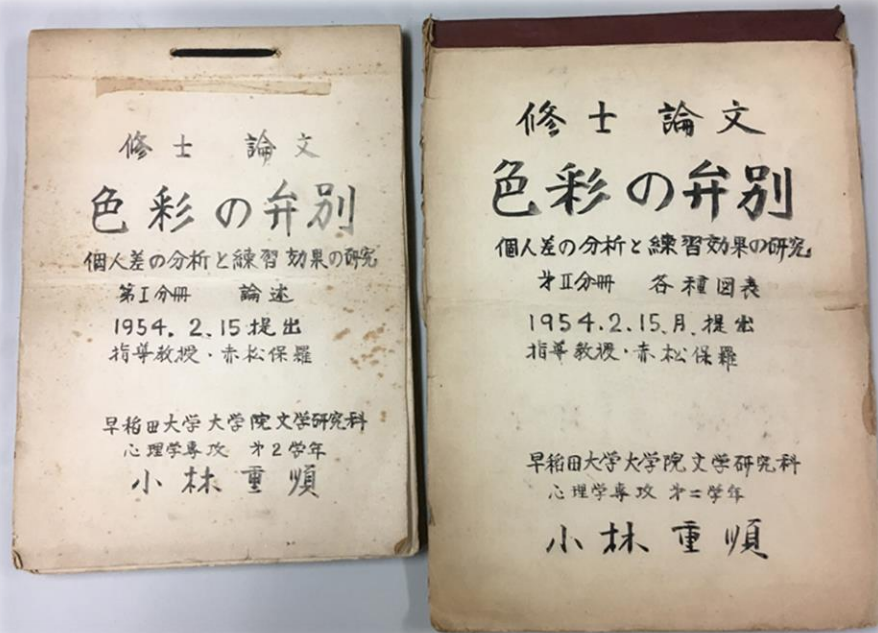 修士 論文
色彩の弁別
個人差の分析と練習効果の研究
第Ⅰ分冊 論述
1954.2.15.提出
指導教授・赤松保羅
早稲田大学大学院文学研究科
心理学専攻 㐧2学年
小林重順
修士 論文
色彩の弁別
個人差の分析と練習効果の研究
㐧Ⅱ分冊 各種図表
1954.2.15.月.提出
指導教授・赤松保羅
早稲田大学大学院文学研究科
心理学専攻 㐧二学年
小林重順